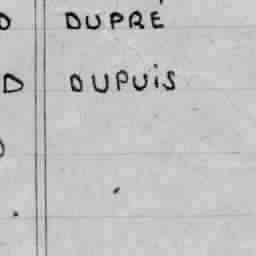 D DUPRÉ
D DUPUIS